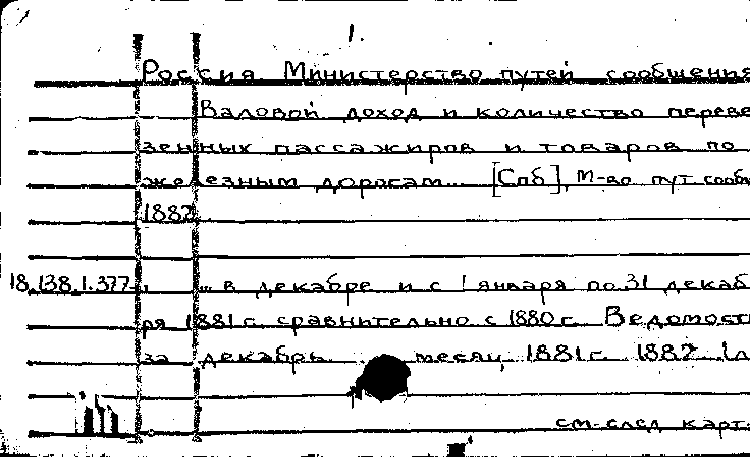 1.
Россия. Министерство путей сообщения
Валовой доход и количество переве
зенных пассажиров и товаров по
железным дорогам... [Спб], М-во пут сооб
1882.
18.138.1.377. ... в декабре и с 1 января по 31 декаб
ря 1881 г. сравнительно с 1880 г. Ведомост
за декабрь месяц 1881 г. 1882
см. след карт